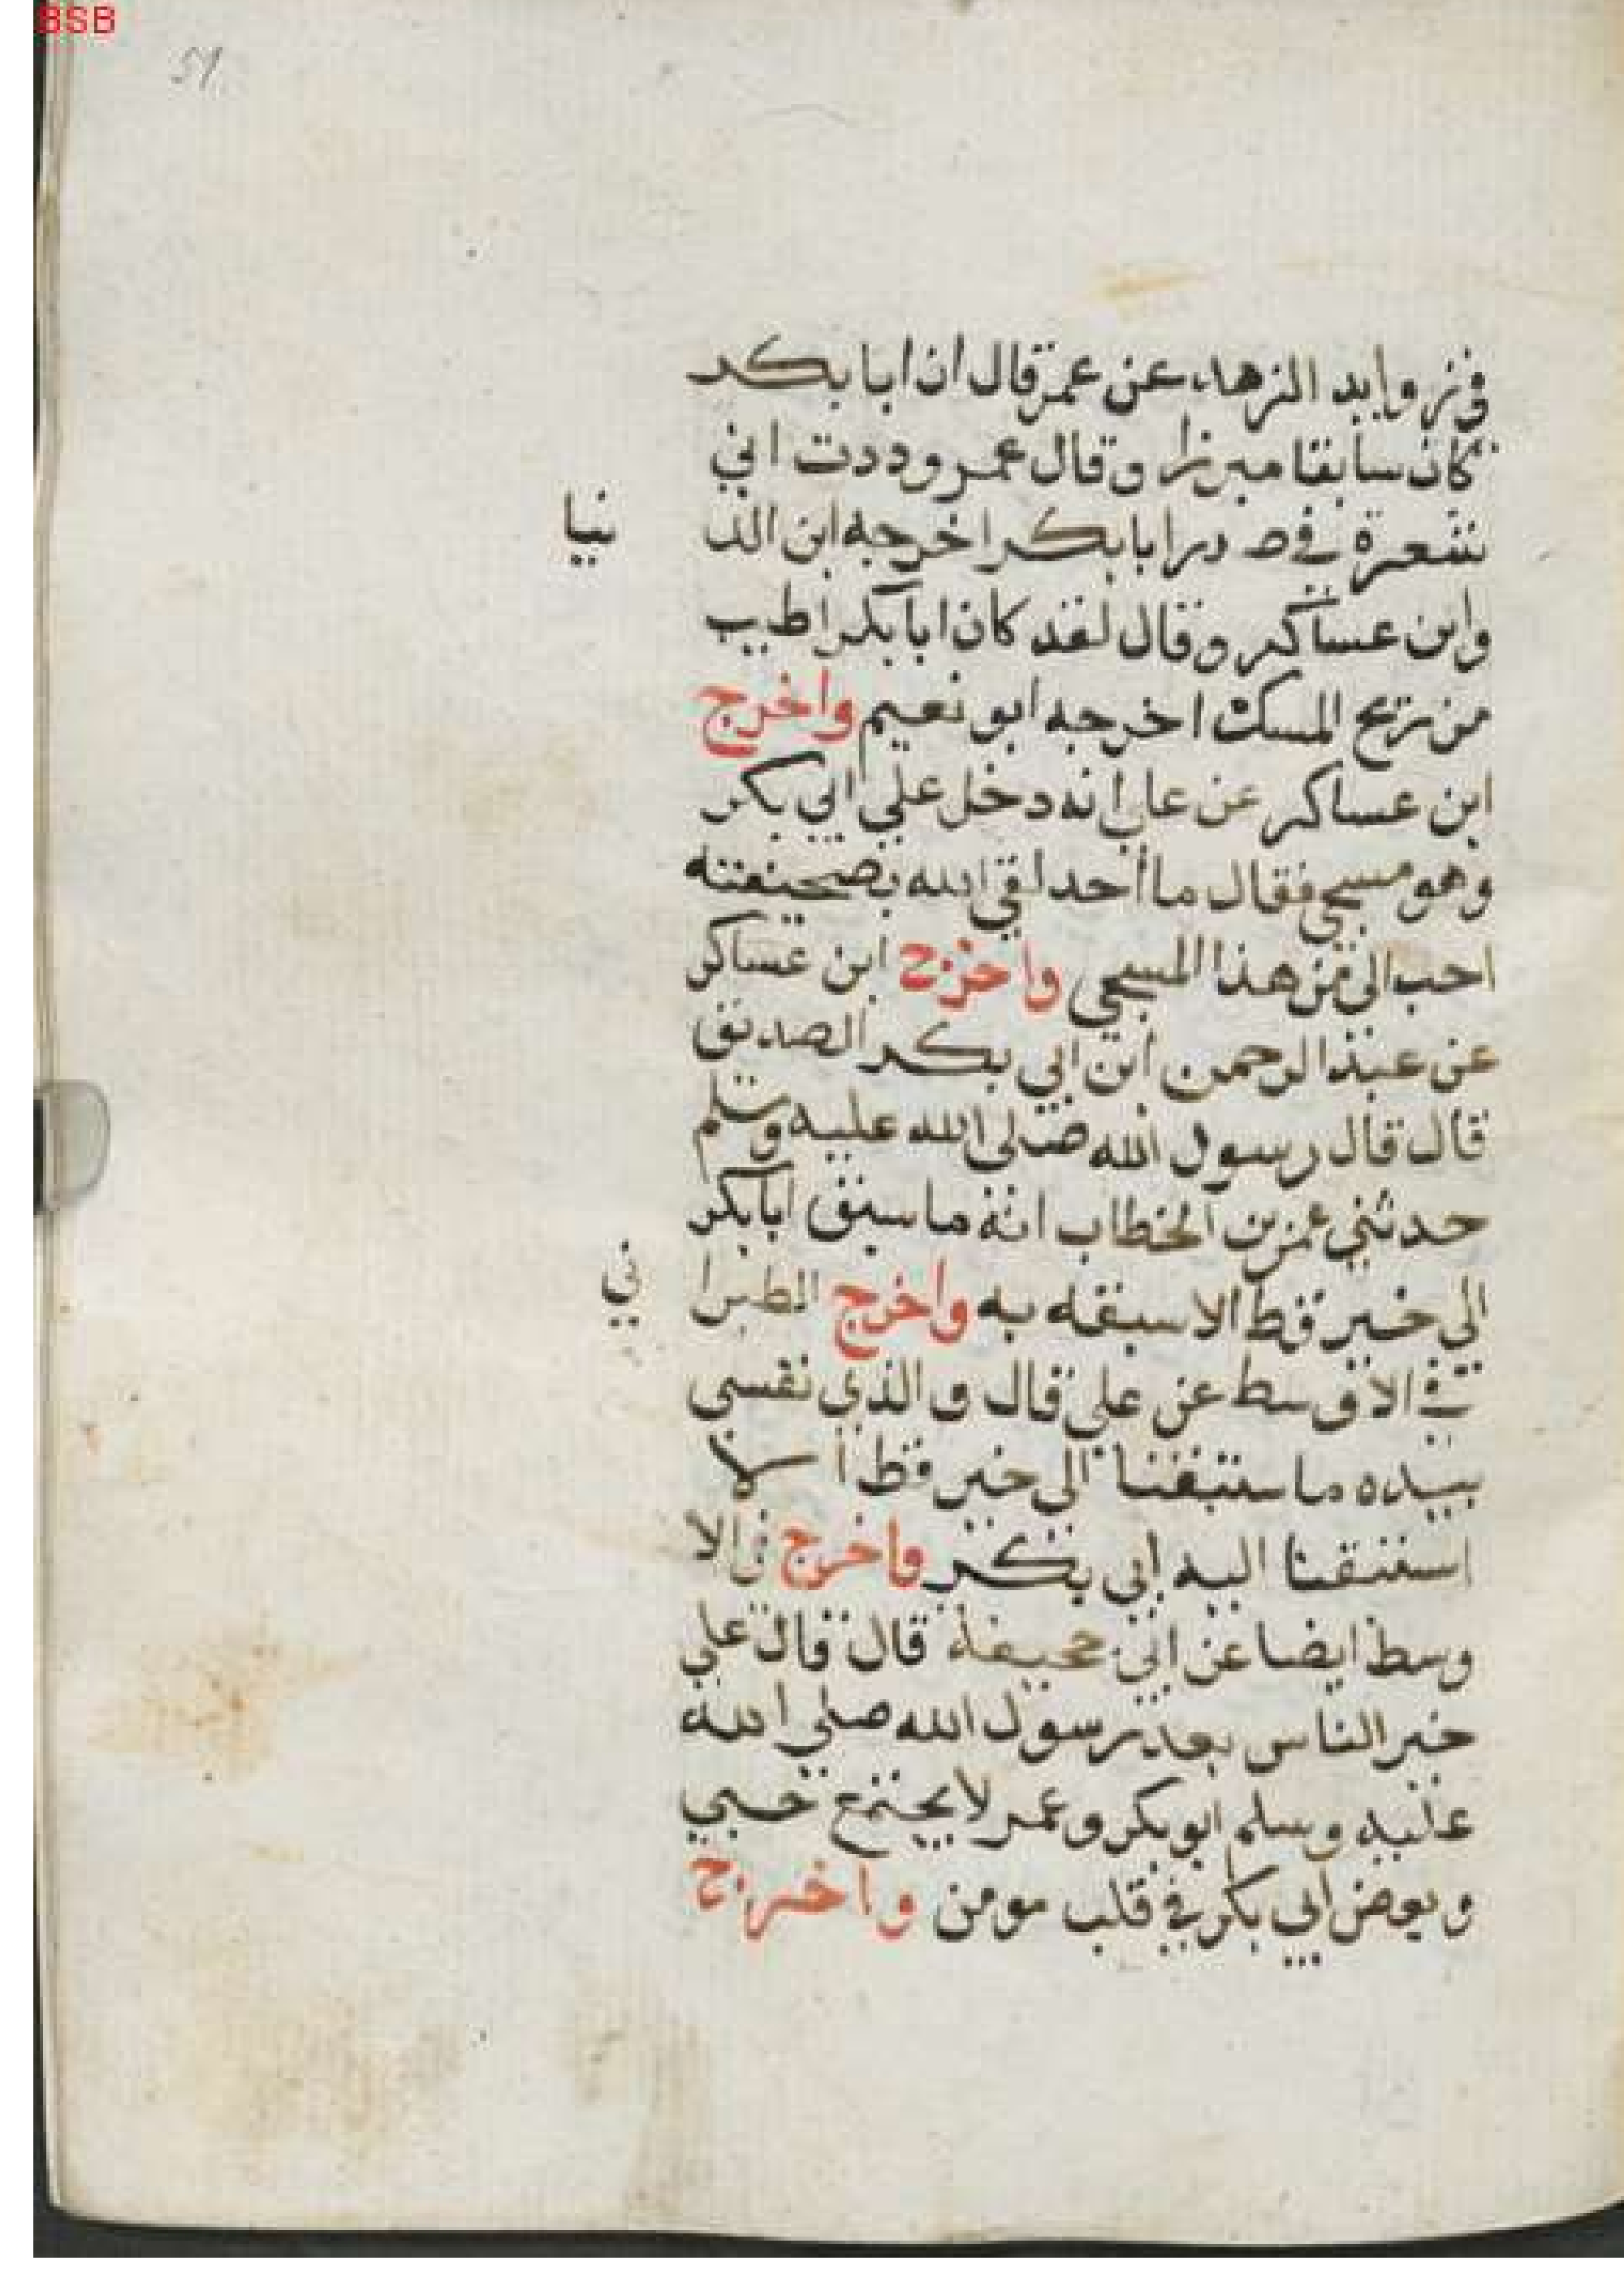 BSB
51
في زوايد الزهد عن عمر قال ان ابا بكر
كان سابقا مبرزا وقال عمر وددت اني
شعرة في صدر ابا بكر اخرجه ابن الد نيا
وابن عساكر وقال لقد كان ابا بكر اطيب
من ريح المسك اخرجه ابو نعيم واخرج
ابن عساكر عن علي انه دخل علي ابي بكر
وهو مسجي فقال ما احد لقي الله بصحيفته
احب الي من هذا المسجي واخرج ابن عساكر
عن عبد الرحمن ابن ابي بكر الصديق
قال قال رسول الله صلى الله عليه وسلم
حدثني عمر بن الخطاب انه ما سبق ابا بكر
الى خير قط الا سبقه به واخرج الطبرا ني
في الاوسط عن علي قال والذي نفسي
بيده ما ستبقنا الى خير قط الا
استبقنا اليه ابي بكر واخرج في الا
وسط ايضا عن ابي جحيفة قال قال علي
خير الناس بعد رسول الله صلي الله
عليه وسلم ابو بكر وعمر لا يجتمع حبي
وبعض ابي بكر في قلب مومن واخرج